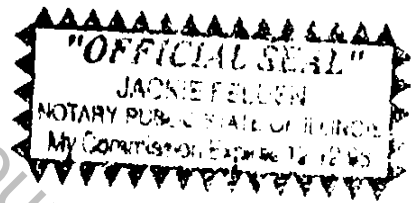 "OFFICIAL SEAL"
JACKIE
NOTARY PUBLIC STATE OF ILLINOIS
My Commission Expires